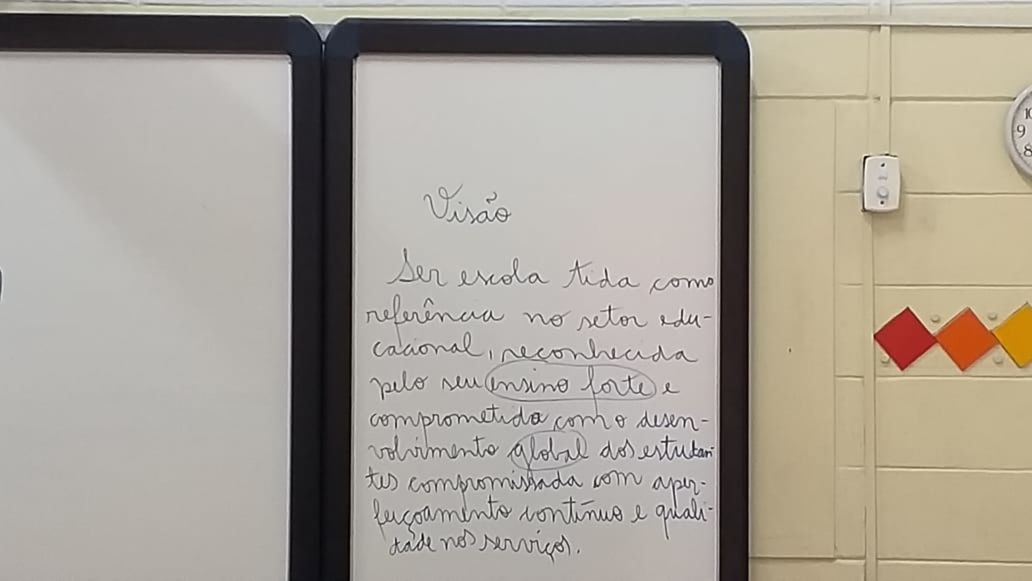 Visão
Ser escola tida como
referência no setor edu-
cacional, reconhecida
pelo seu ensino forte e
comprometida com o desen-
volvimento global dos estudan-
tes compromissada com aper-
feiçoamento contínuo e quali-
dade nos serviços.
10
9
8